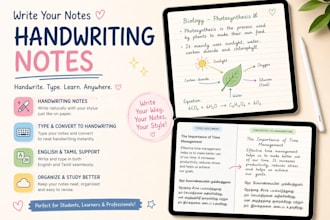 Write Your Notes
HANDWRITING
NOTES
Handwrite. Type. Learn. Anywhere.
HANDWRITING NOTES
Write naturally with your stylus
just like on paper.
TYPE & CONVERT TO HANDWRITING
Type your notes and convert
to real handwriting instantly.
ENGLISH & TAMIL SUPPORT
Write and type in both
English and Tamil seamlessly.
ORGANIZE & STUDY BETTER
Keep your notes neat, organized
and easy to revise.
Perfect for Students, Learners & Professionals!
Write
Your Way,
Your Notes,
Your Style!
Biology - Photosynthesis
Photosynthesis is the process used
by plants to make their own food.
It mainly uses sunlight, water,
carbon dioxide and chlorophyll.
Sunlight
Carbon dioxide
Oxygen
Water
Equation:
The Importance of Time
Management
Effective time management
helps us to make better use
of our time. It increases
productivity, reduces stress
and helps us achieve
our goals.
The Importance of Time
Management
Effective time management
helps us to make better use
of our time. It increases
productivity, reduces stress
and helps us to achieve
our goals.